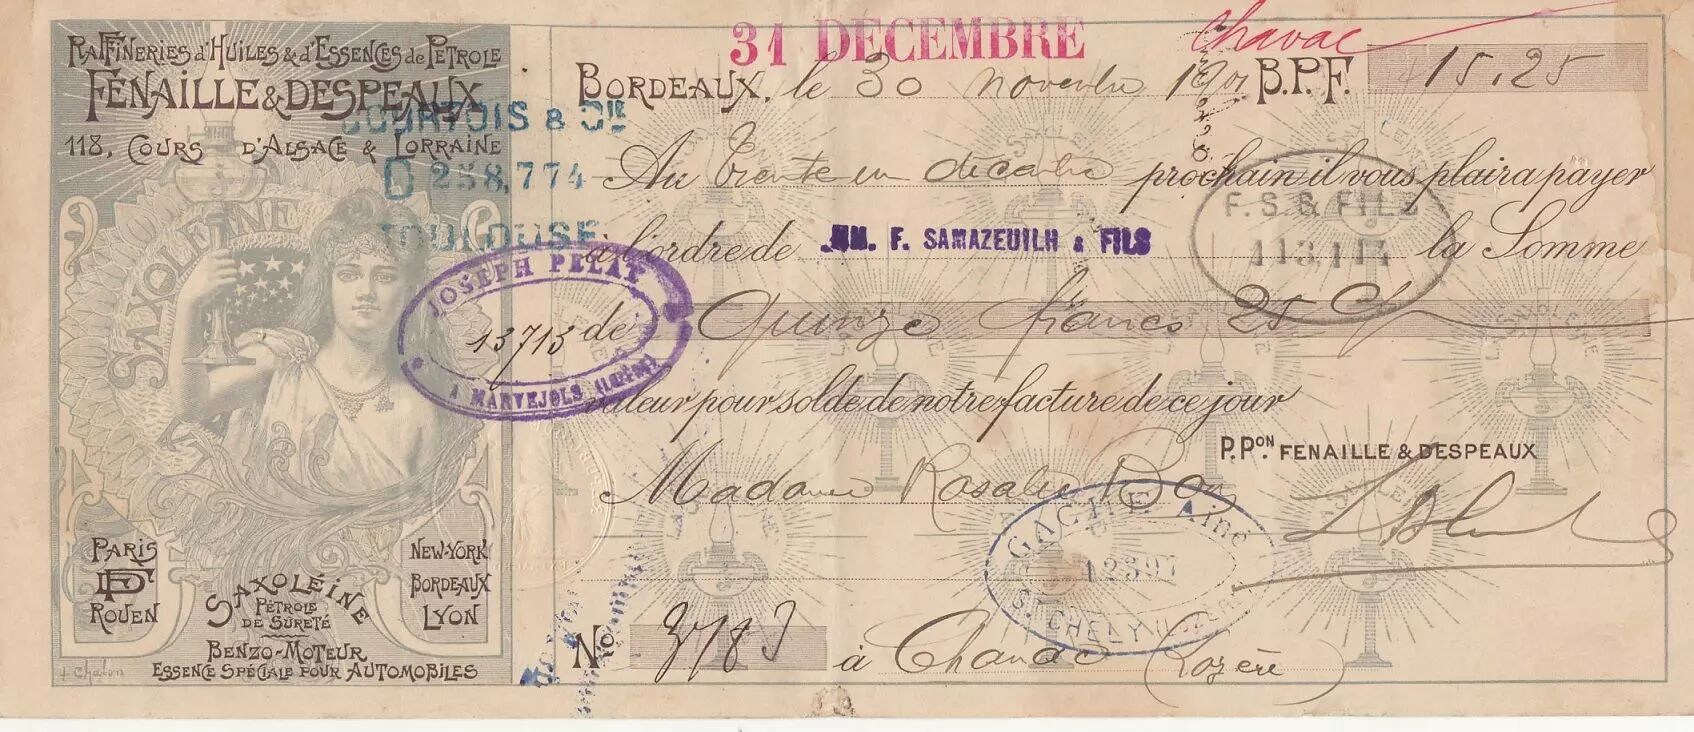 RAFFINERIES d'HUILES & d'ESSENCES de PÉTROLE
FENAILLE & DESPEAUX
118, COURS D'ALSACE & LORRAINE
COURTOIS & CIE
238,774
TOULOUSE
SAXOLÉINE
PARIS
ROUEN
NEW-YORK
BORDEAUX
LYON
SAXOLÉINE
PÉTROLE
DE SÛRETÉ
BENZO-MOTEUR
ESSENCE SPÉCIALE POUR AUTOMOBILES
31 DECEMBRE
Chanac
BORDEAUX, le 30 novembre 1901 B.P.F. 15,25
Au trente un décembre prochain il vous plaira payer
à l'ordre de MM. F. SAMAZEUILH & FILS la Somme
F. S. & FILS
113,114
de Quinze francs 25 c
JOSEPH PELAT
13713
A MARVEJOLS (Lozère)
valeur pour solde de notre facture de ce jour
P. PON. FENAILLE & DESPEAUX
Madame Rosalie
GACHE Ainé
12397
St CHELY (LOZERE)
No. 3783 à Chanac (Lozère)